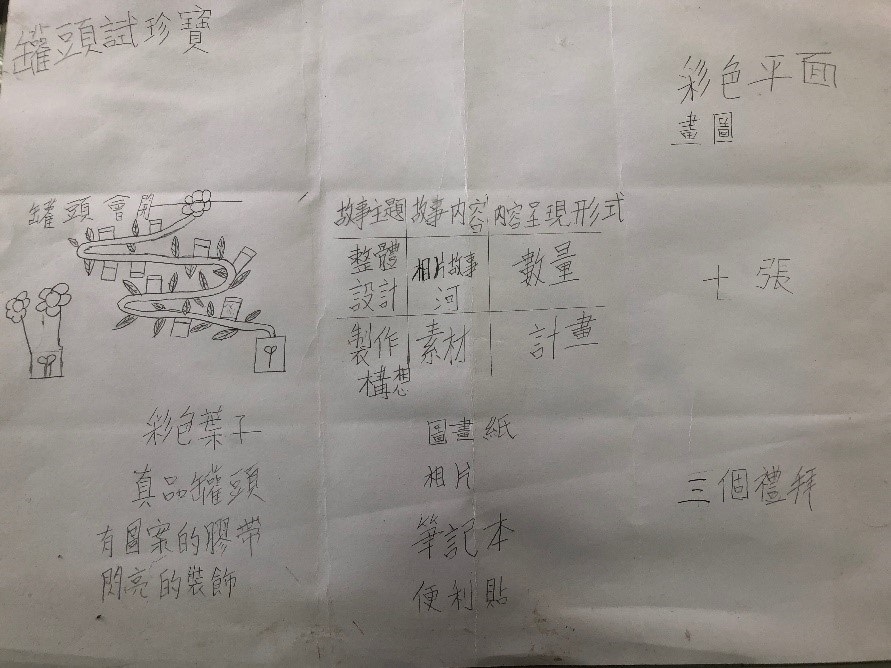 罐頭試珍寶
彩色平面
畫圖
罐頭會開
故事主題 故事内容 内容呈現形式
整體設計 相片故事河 數量
十張
製作構想 素材 計畫
彩色葉子
真品罐頭
有圖案的膠帶
閃亮的裝飾
圖畫紙
相片
筆記本
便利貼
三個禮拜